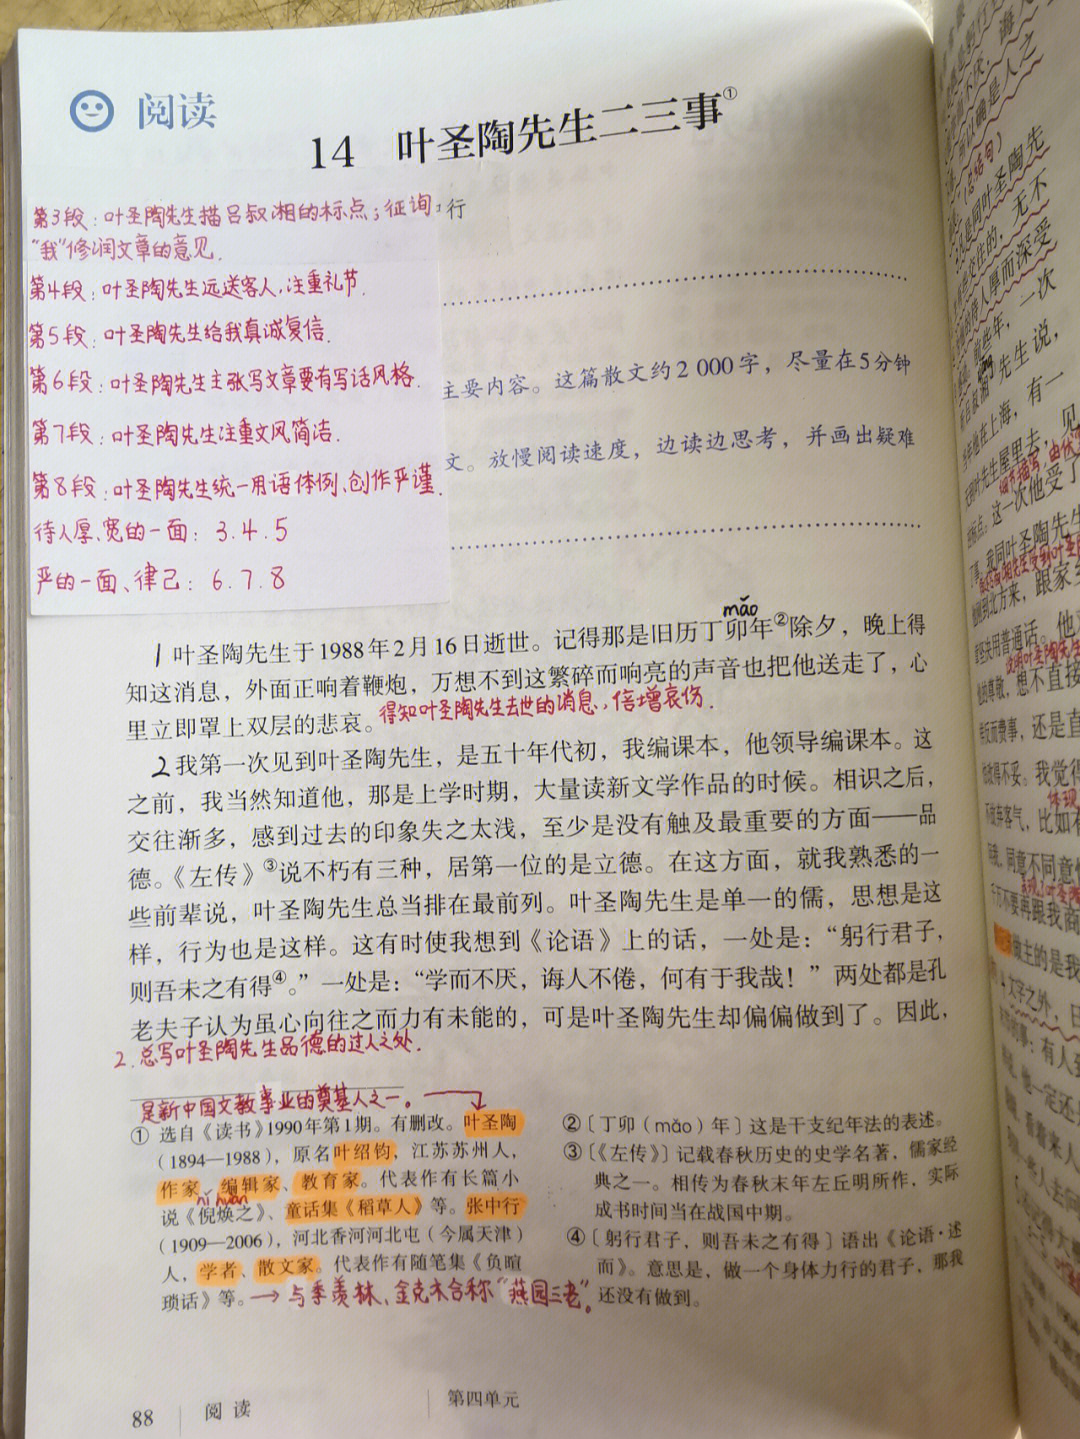 阅读
14 叶圣陶先生二三事①
第3段：叶圣陶先生描吕叔湘的标点；征询
行
“我”修润文章的意见.
第4段：叶圣陶先生远送客人,注重礼节.
第5段：叶圣陶先生给我真诚复信.
第6段：叶圣陶先生主张写文章要有写话风格.
主要内容。这篇散文约2 000字，尽量在5分钟
第7段：叶圣陶先生注重文风简洁.
文。放慢阅读速度，边读边思考，并画出疑难
第8段：叶圣陶先生统一用语体例、创作严谨.
待人厚、宽的一面：3.4.5
严的一面、律己：6.7.8
mǎo
1 叶圣陶先生于1988年2月16日逝世。记得那是旧历丁卯年②除夕，晚上得
知这消息，外面正响着鞭炮，万想不到这繁碎而响亮的声音也把他送走了，心
里立即罩上双层的悲哀。得知叶圣陶先生去世的消息，倍增哀伤.
2 我第一次见到叶圣陶先生，是五十年代初，我编课本，他领导编课本。这
之前，我当然知道他，那是上学时期，大量读新文学作品的时候。相识之后，
交往渐多，感到过去的印象失之太浅，至少是没有触及最重要的方面——品
德。《左传》③说不朽有三种，居第一位的是立德。在这方面，就我熟悉的一
些前辈说，叶圣陶先生总当排在最前列。叶圣陶先生是单一的儒，思想是这
样，行为也是这样。这有时使我想到《论语》上的话，一处是：“躬行君子，
则吾未之有得④。”一处是：“学而不厌，诲人不倦，何有于我哉！”两处都是孔
老夫子认为虽心向往之而力有未能的，可是叶圣陶先生却偏偏做到了。因此，
2.总写叶圣陶先生品德的过人之处.
是新中国文教事业的奠基人之一。
① 选自《读书》1990年第1期。有删改。叶圣陶
（1894—1988），原名叶绍钧，江苏苏州人，
作家、编辑家、教育家。代表作有长篇小
ní huàn
说《倪焕之》、童话集《稻草人》等。张中行
（1909—2006），河北香河河北屯（今属天津）
人，学者、散文家。代表作有随笔集《负暄
琐话》等。→与季羡林、金克木合称“燕园三老”。
②〔丁卯（mǎo）年〕这是干支纪年法的表述。
③〔《左传》〕记载春秋历史的史学名著，儒家经
典之一。相传为春秋末年左丘明所作，实际
成书时间当在战国中期。
④〔躬行君子，则吾未之有得〕语出《论语·述
而》。意思是，做一个身体力行的君子，那我
还没有做到。
88 阅读 第四单元
所以确是人之
（总结句）
凡是同叶圣陶先
交往的，无不
待人厚而深受
前些年，一次
先生说，
在上海，有一
先生屋里去，见
标点。这一次他受了
我同叶圣陶先生
到北方来，跟家
用普通话。他
想不直接
反而费事，还是直
不妥。我觉得
体现
客气，比如
同意不同意
千万不要再跟我商
做主的是我
文字之外，日
有人到
他一定还
看着来人